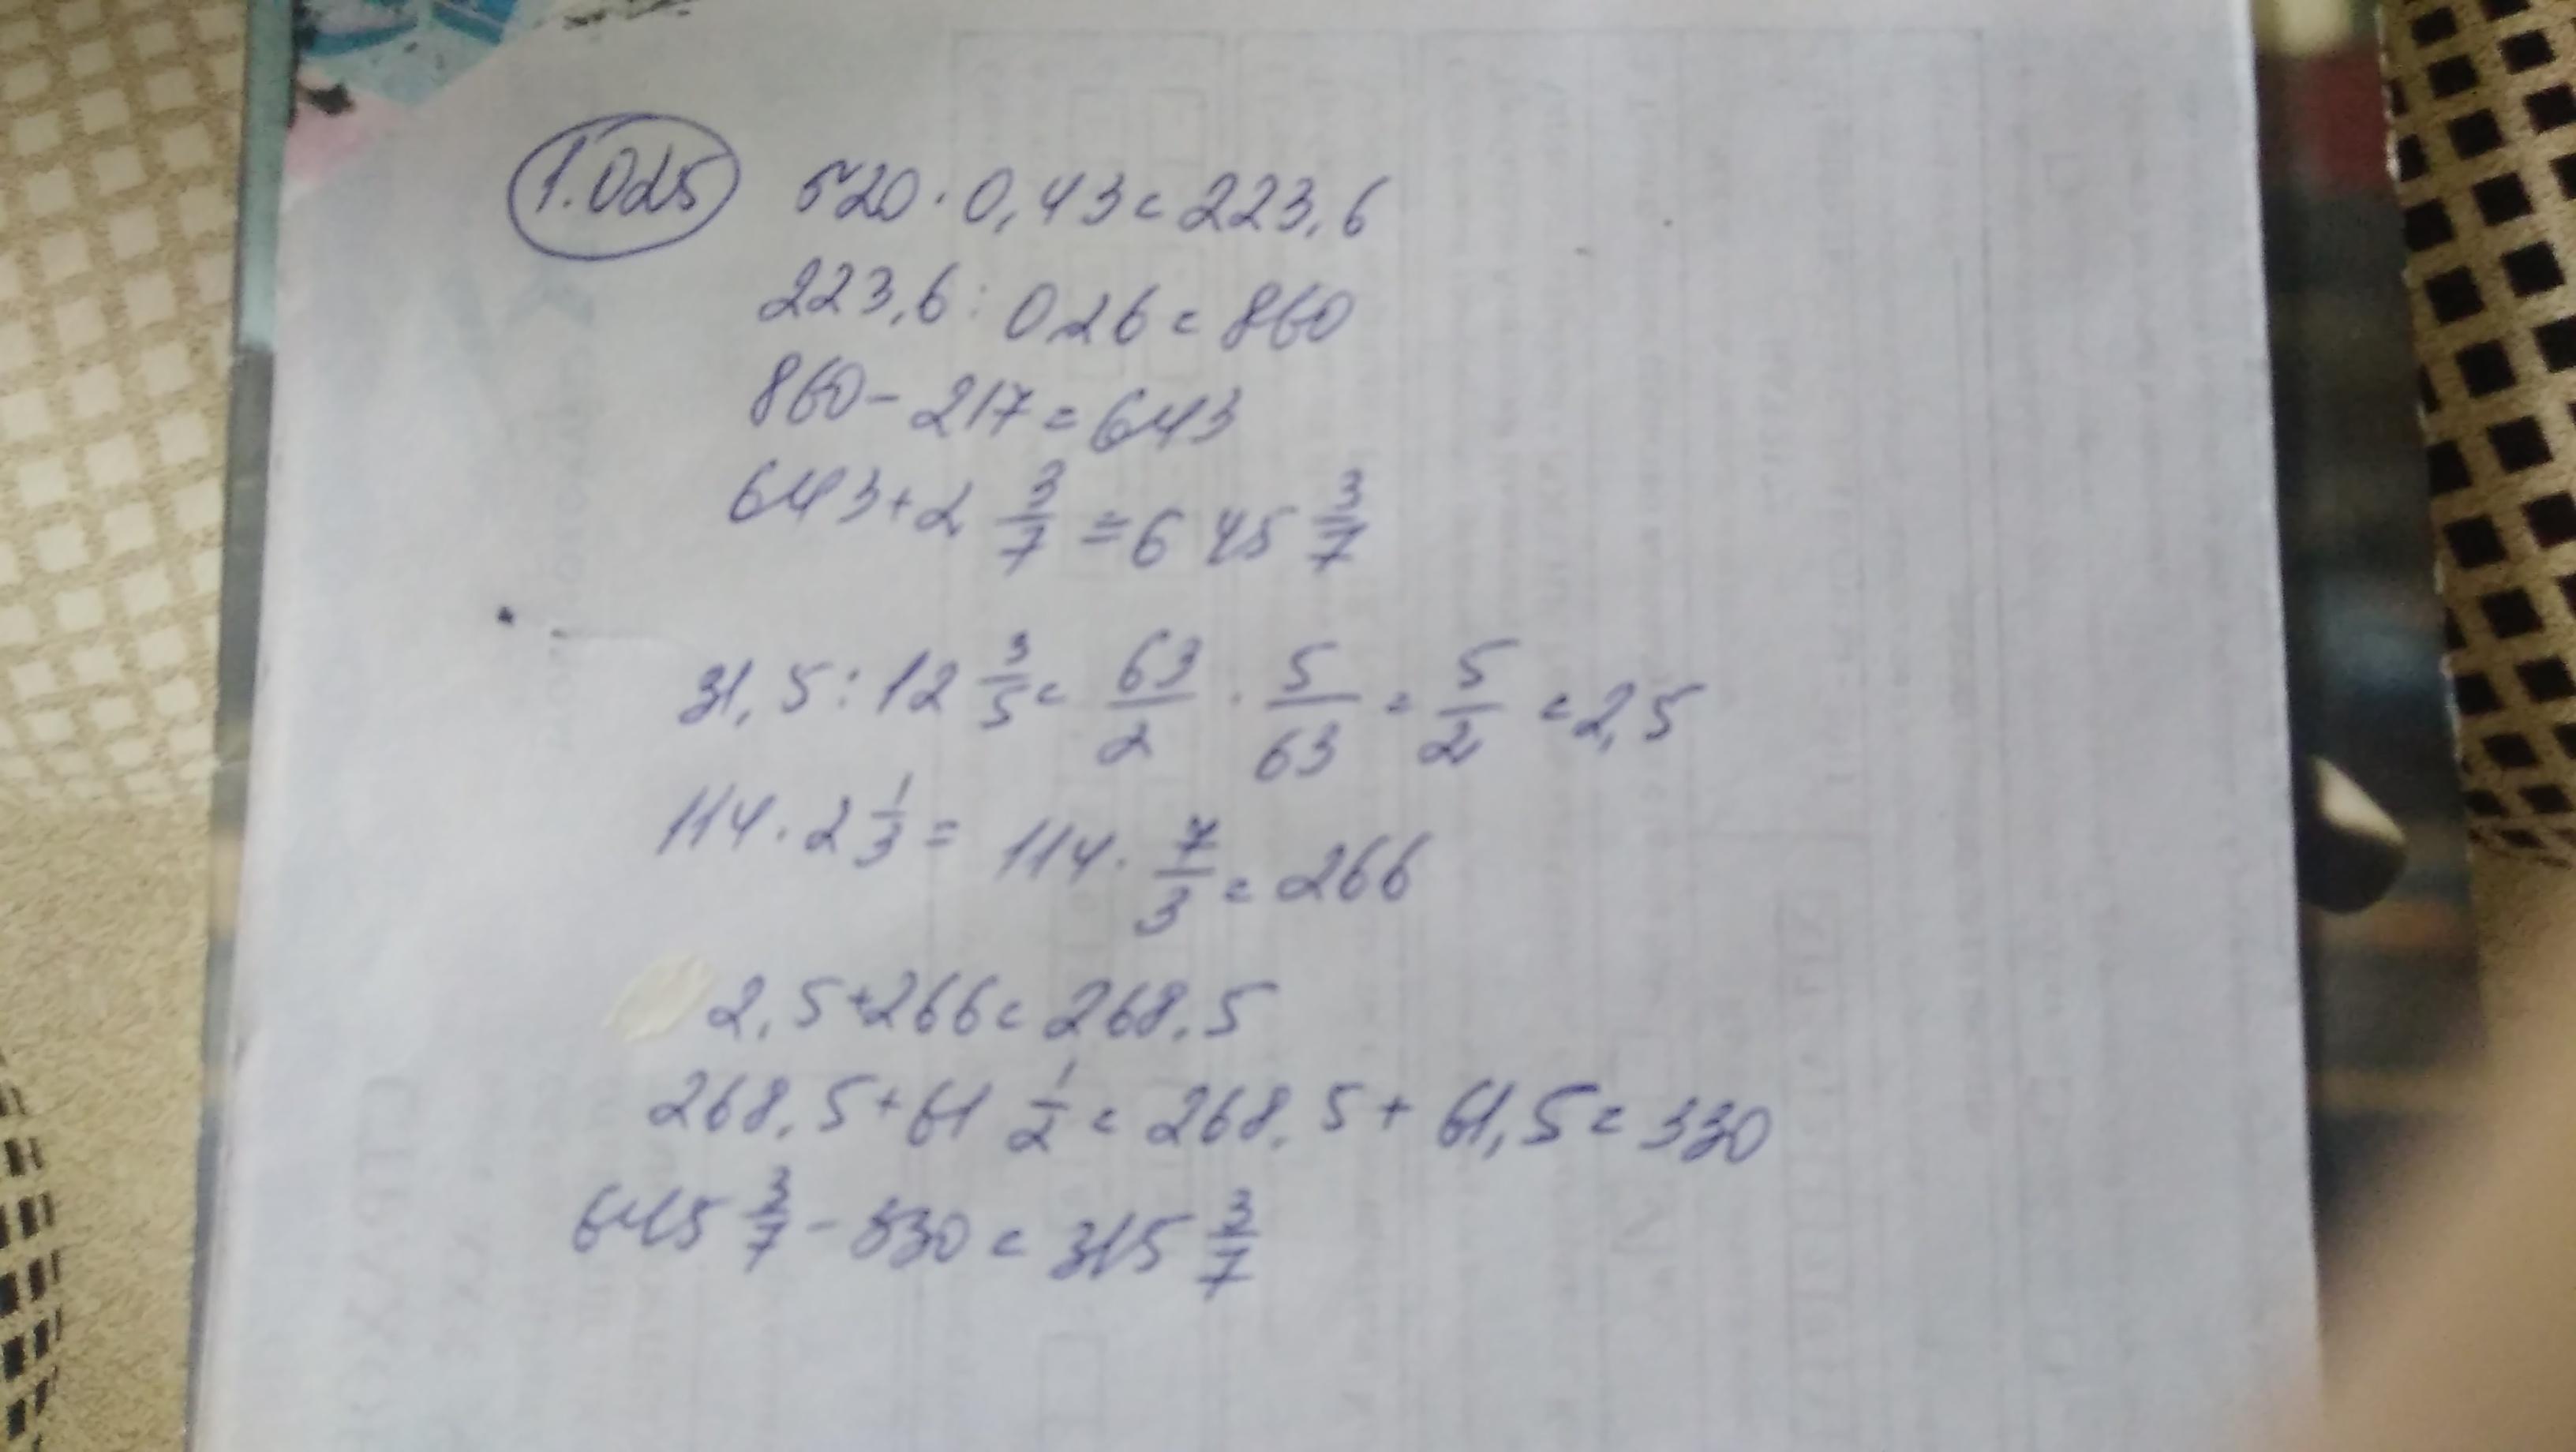 1.025 520 · 0,43 = 223,6
223,6 : 0,26 = 860
860 - 217 = 643
643 + 2 3/7 = 645 3/7
31,5 : 12 3/5 = 63/2 · 5/63 = 5/2 = 2,5
114 · 2 1/3 = 114 · 7/3 = 266
2,5 + 266 = 268,5
268,5 + 61 1/2 = 268,5 + 61,5 = 330
645 3/7 - 330 = 315 3/7